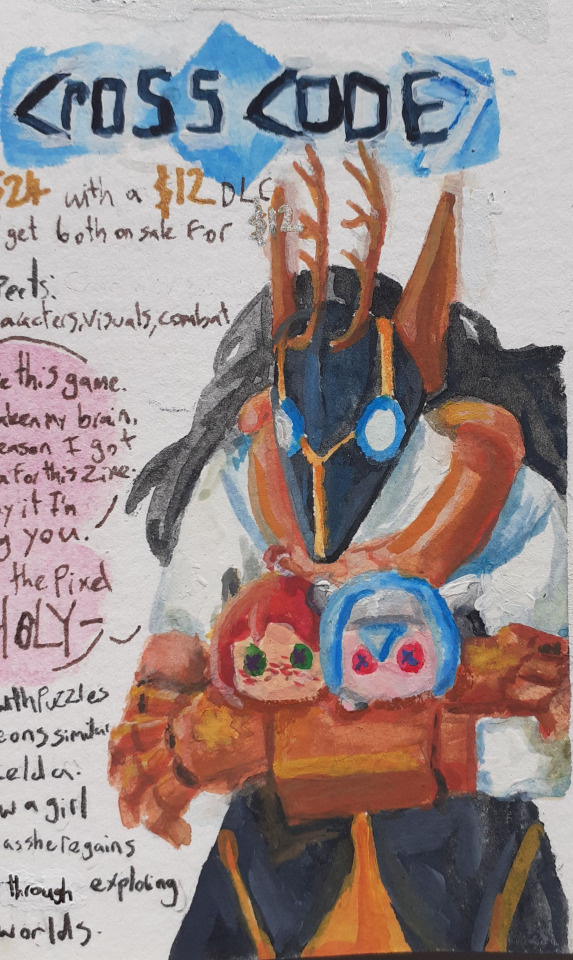 CROSS CODE
$24 with a $12 DLC
get both on sale for $12
acters, Visuals, combat
this game.
my brain,
eason I got
for this zine.
it I'm
you.
the Pixel
HOLY-
with Puzzles
eons similar
elda.
w a girl
as she regains
through exploring
worlds.